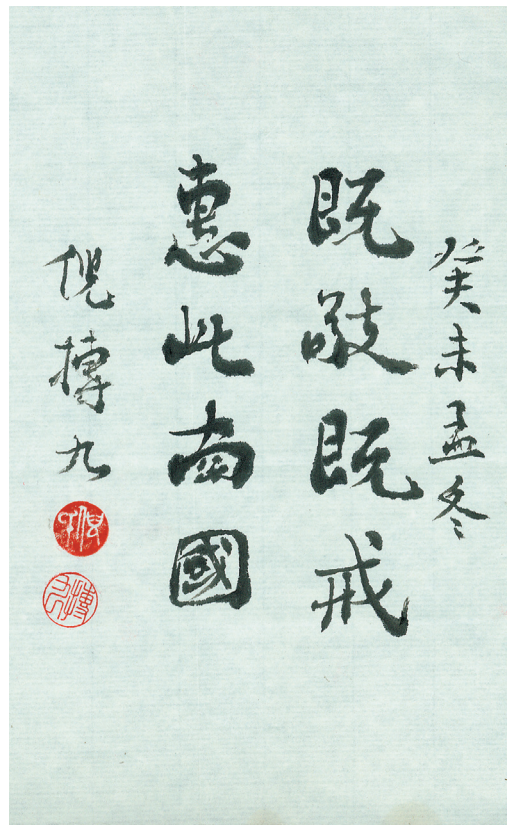 癸未孟冬
既敬既戒
惠此南國
倪摶九